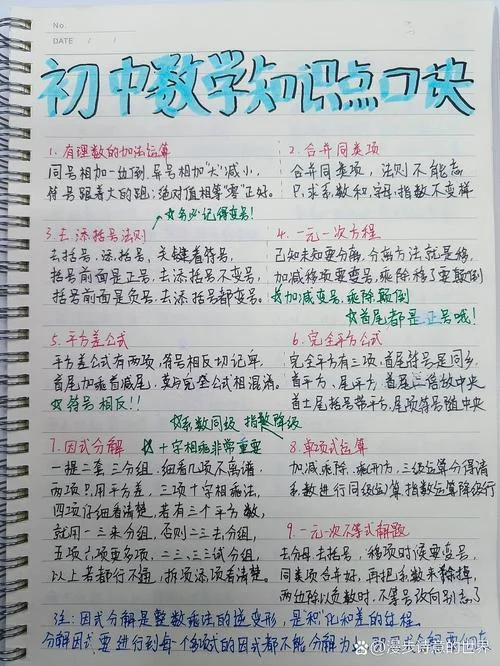 No.
DATE / /
初中数学知识点口诀
1. 有理数的加法运算
同号相加一边倒,异号相加"大"减小,
符号跟着大的跑;绝对值相等"零"正好。
2. 合并同类项
合并同类项,法则不能忘
只求系数和,字母、指数不变样
☆务必记得变号!
3. 去、添括号法则
去括号、添括号,关键看符号,
括号前面是正号,去添括号不变号,
括号前面是负号,去添括号都变号。
4. 一元一次方程
已知未知要分离,分离方法就是移,
加减移项要变号,乘除移了要颠倒
☆加减变号,乘除颠倒
☆首尾都是正号哦!
5. 平方差公式
平方差公式有两项,符号相反切记牢,
首尾加乘首减尾,莫与完全公式相混淆。
☆符号相反!!
6. 完全平方公式
完全平方有三项,首尾符号是同乡,
首平方、尾平方,首尾二倍放中央
首±尾括号带平方,尾项符号随中央
☆系数同级 指数降级
7. 因式分解 ☆十字相乘非常重要
一提二套三分组,细看几项不离谱,
两项只用平方差,三项十字相乘法,
四项仔细看清楚,若有三个平方数,
就用一三来分组,否则二三去分组,
五项六项更多项,二三、三三试分组,
以上若都行不通,拆项添项看清楚。
8. 单项式运算
加减乘除、乘开方,三级运算分得清
系数进行同级运算,指数运算降级行
9. 一元一次不等式解题
去分母去括号,移项时候要变号,
同类项合并好,再把系数来除掉,
两边除以负数时,不等号改向别忘了
注:因式分解是整数乘法的逆变形,是积化和差的过程
分解因式要进行到每个多项式的因式都不能分解为
@漫步诗意的世界